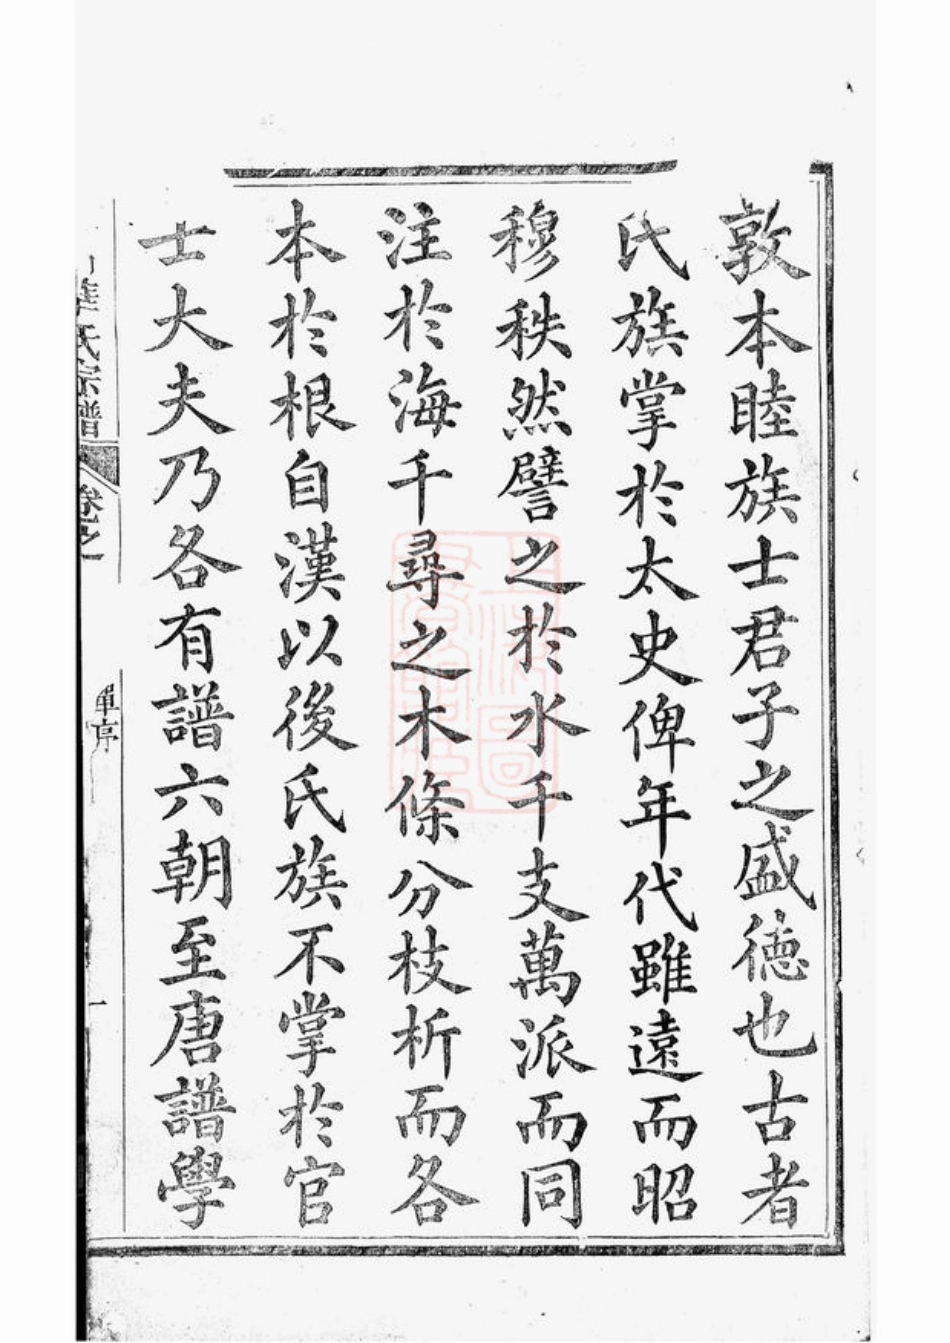 敦本睦族士君子之盛德也古者
氏族掌於太史俾年代雖遠而昭
穆秩然譬之於水千支萬派而同
注於海千尋之木條分枝析而各
本於根自漢以後氏族不掌於官
士大夫乃各有譜六朝至唐譜學
華氏宗譜
卷之
單序
一